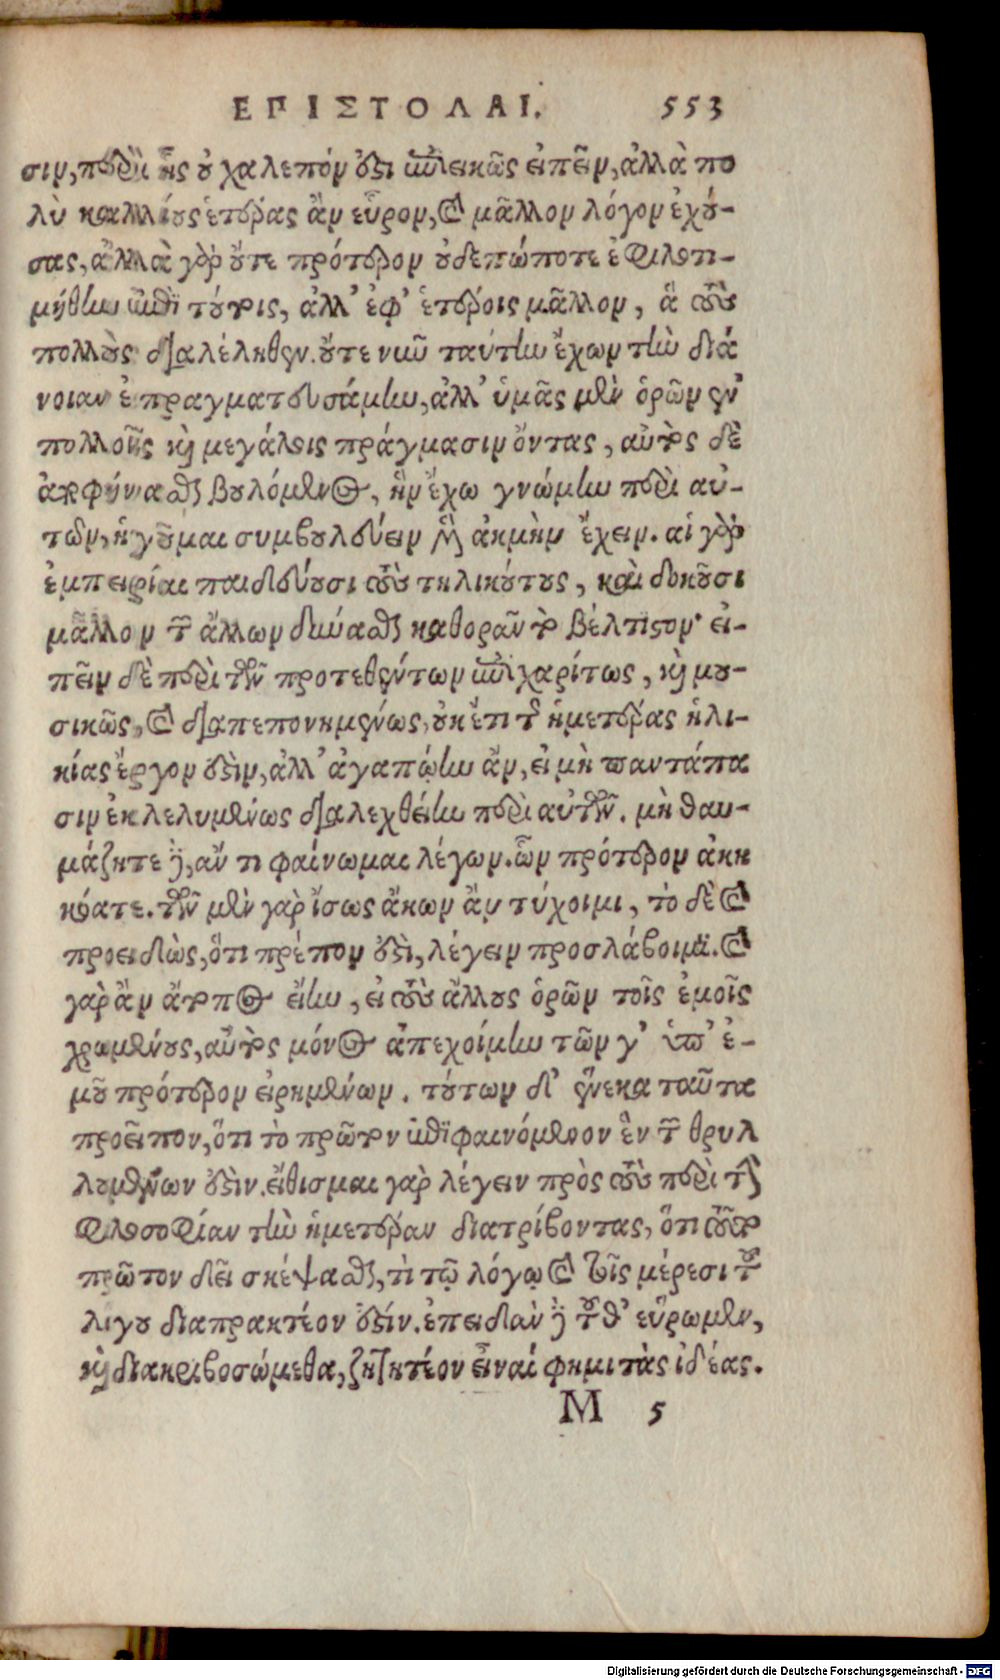 ΕΠΙΣΤΟΛΑΙ. 553
σιν, περὶ ἧς οὐ χαλεπόν ἐστι ἐπιεικῶς εἰπεῖν, ἀλλὰ πο
λὺ καλλίους ἑτέρας ἂν εὗρον, καὶ μᾶλλον λόγον ἐχού-
σας, ἀλλὰ γὰρ οὔτε πρότερον οὐδεπώποτε ἐφιλοτι-
μήθην ἐπὶ τούτοις, ἀλλ' ἐφ' ἑτέροις μᾶλλον, ἃ τοὺς
πολλοὺς διαλέληθεν. οὔτε νῦν ταύτην ἔχων τὴν διά
νοιαν ἐπραγματευσάμην, ἀλλ' ὑμᾶς μὲν ὁρῶν ἐν
πολλοῖς καὶ μεγάλοις πράγμασιν ὄντας, αὐτὸς δὲ
ἀποφήνασθαι βουλόμενος, ἣν ἔχω γνώμην περὶ αὐ-
τῶν, ἡγοῦμαι συμβουλεύειν με ἀκμὴν ἔχειν. αἱ γὰρ
ἐμπειρίαι παιδεύουσι τοὺς τηλικούτους, καὶ δοκοῦσι
μᾶλλον τῶν ἄλλων δύνασθαι καθορᾶν τὸ βέλτιστον· εἰ-
πεῖν δὲ περὶ τῶν προτεθέντων ἐπιχαρίτως, καὶ μου-
σικῶς, καὶ διαπεπονημένως, οὐκέτι τῆς ἡμετέρας ἡλι-
κίας ἔργον ἐστὶν, ἀλλ' ἀγαπῴην ἂν, εἰ μὴ παντάπα
σιν ἐκλελυμένως διαλεχθείην περὶ αὐτῶν. μὴ θαυ-
μάζητε δὲ, ἄν τι φαίνωμαι λέγων. ὧν πρότερον ἀκη
κόατε. τῶν μὲν γὰρ ἴσως ἄκων ἂν τύχοιμι, τὸ δὲ καὶ
προειδὼς, ὅτι πρέπον ἐστὶ, λέγειν προσλάβοιμι. καὶ
γὰρ ἂν ἄτοπος εἴην, εἰ τοὺς ἄλλους ὁρῶν τοῖς ἐμοῖς
χρωμένους, αὐτὸς μόνος ἀπεχοίμην τῶν γ' ὑπ' ἐ-
μοῦ πρότερον εἰρημένων. τούτων δ' ἕνεκα ταῦτα
προεῖπον, ὅτι τὸ πρῶτον ἐπιφαινόμενον ἓν τῶν θρυλ
λουμένων ἐστὶν. εἴθισμαι γὰρ λέγειν πρὸς τοὺς περὶ τὴν
φιλοσοφίαν τὴν ἡμετέραν διατρίβοντας, ὅτι τοῦτο
πρῶτον δεῖ σκέψασθαι, τὶ τῷ λόγῳ καὶ τοῖς μέρεσι τοῦ
λόγου διαπρακτέον ἐστίν. ἐπειδὰν δὲ τοῦθ' εὕρωμεν,
καὶ διακριβοσώμεθα, ζητητέον εἶναί φημι τὰς ἰδέας.
M 5
Digitalisierung gefördert durch die Deutsche Forschungsgemeinschaft - DFG